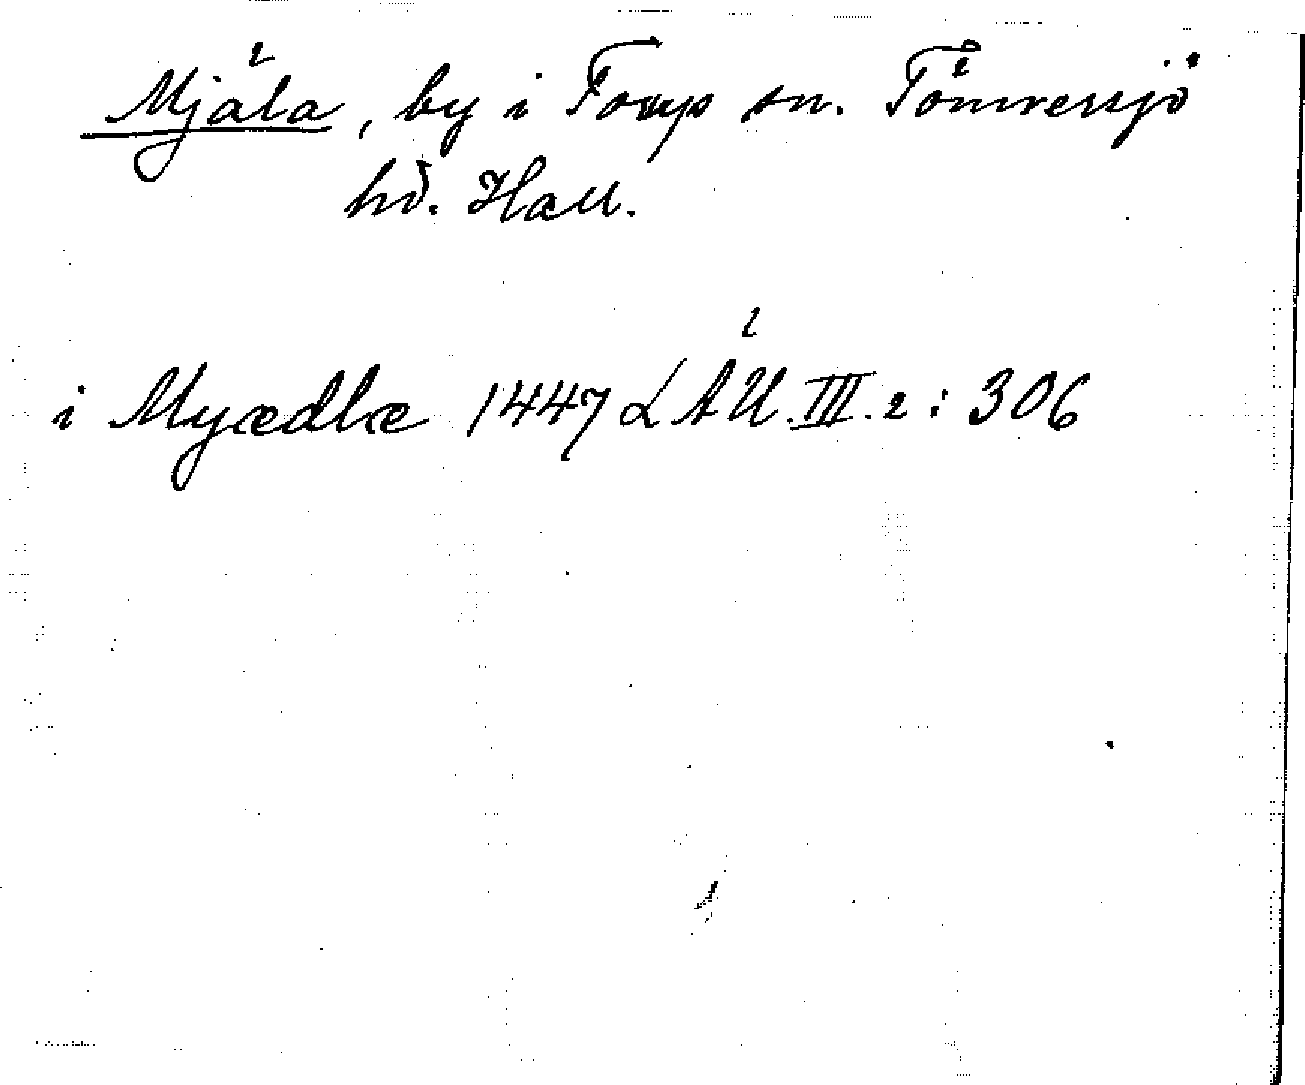 Mjäla, by i Torup sn. Tönnersjö
hd. Hall.
i Myædlæ 1447 LÄU.III.2: 306